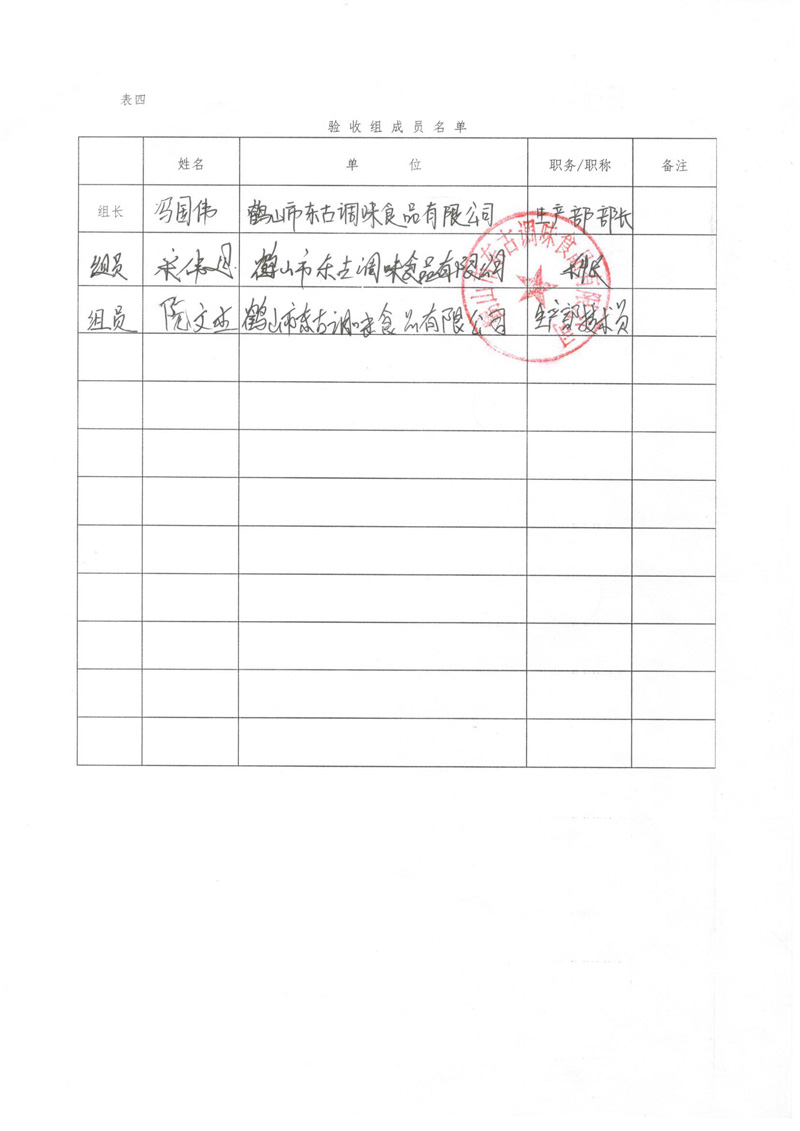 表四
验收组成员名单
姓名 单位 职务/职称 备注
组长 冯国伟 鹤山市东古调味食品有限公司 生产部部长
组员 鹤山市东古调味食品有限公司 科长
组员 阮文杰 鹤山市东古调味食品有限公司 生产部技术员
鹤山市东古调味食品有限公司